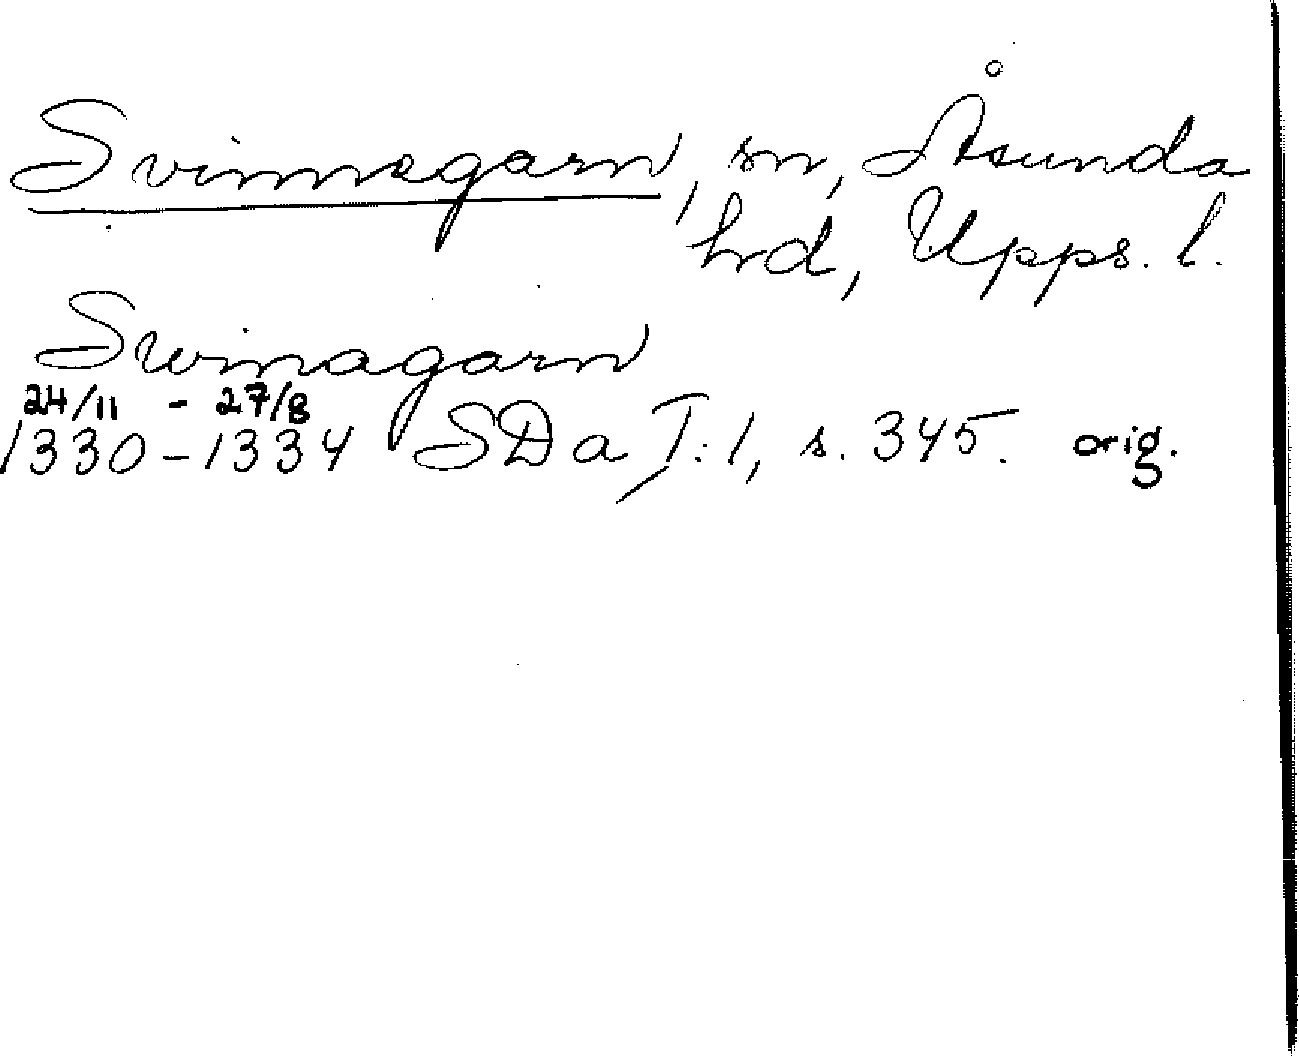 Svinnegarn, sn, Åsunda
hrd, Upps. l.
Swinagarn
24/11 - 27/8
1330-1334 SDa I:1, s. 345. orig.